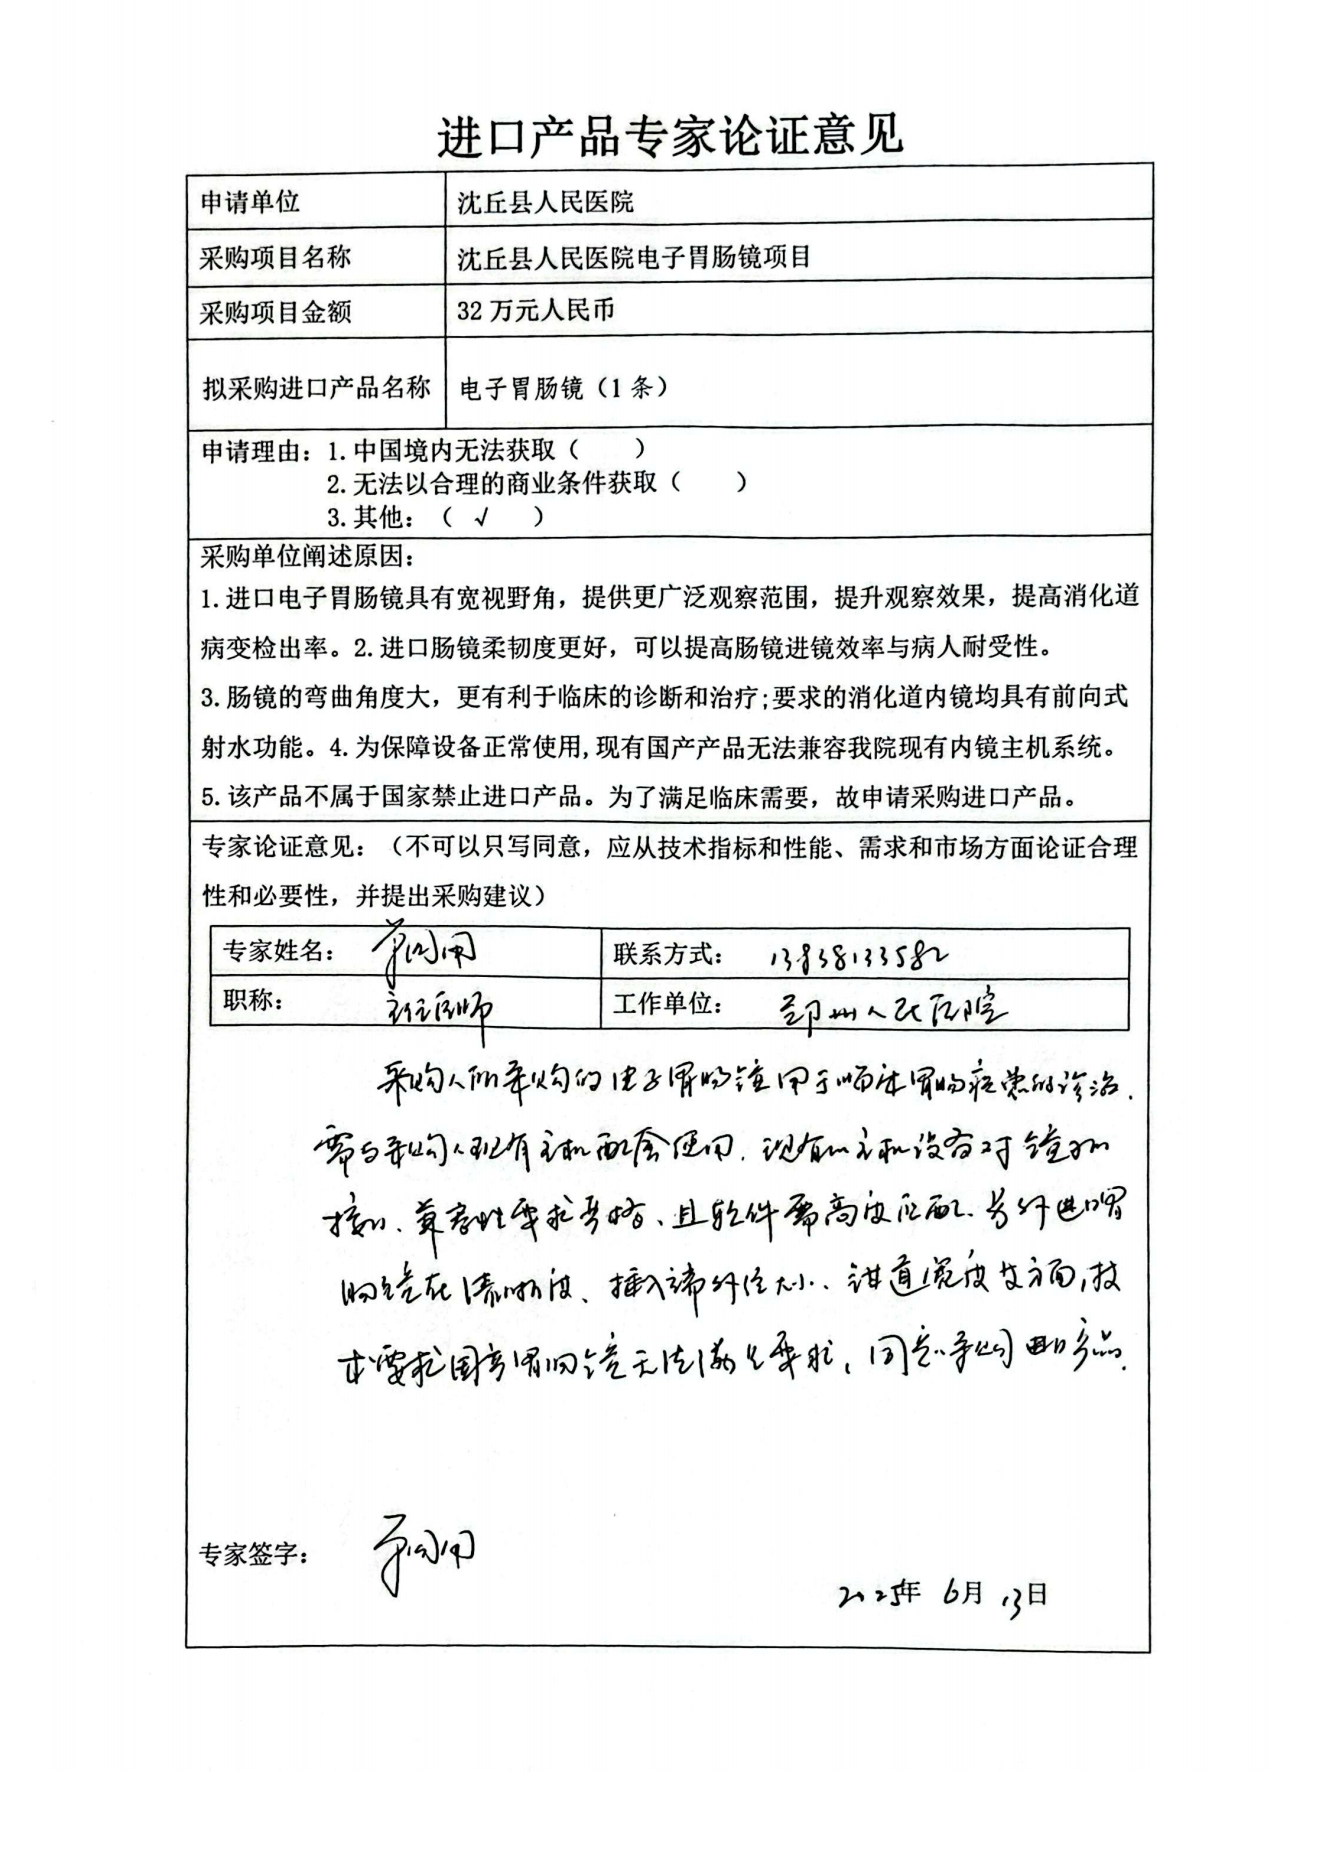 进口产品专家论证意见
申请单位 沈丘县人民医院
采购项目名称 沈丘县人民医院电子胃肠镜项目
采购项目金额 32 万元人民币
拟采购进口产品名称 电子胃肠镜（1 条）
申请理由：1.中国境内无法获取（ ）
2.无法以合理的商业条件获取（ ）
3.其他：（ √ ）
采购单位阐述原因：
1.进口电子胃肠镜具有宽视野角，提供更广泛观察范围，提升观察效果，提高消化道
病变检出率。2.进口肠镜柔韧度更好，可以提高肠镜进镜效率与病人耐受性。
3.肠镜的弯曲角度大，更有利于临床的诊断和治疗;要求的消化道内镜均具有前向式
射水功能。4.为保障设备正常使用,现有国产产品无法兼容我院现有内镜主机系统。
5.该产品不属于国家禁止进口产品。为了满足临床需要，故申请采购进口产品。
专家论证意见：（不可以只写同意，应从技术指标和性能、需求和市场方面论证合理
性和必要性，并提出采购建议）
专家姓名： 联系方式： 13838133582
职称： 主任医师 工作单位： 郑州人民医院
采购人所采购的电子胃肠镜用于临床胃肠疾患的诊治.
需与采购人现有主机配套使用.现有的主机设备对镜子的
接口、兼容性要求严格、且软件需高度匹配.另外进口胃
肠镜在清晰度、插入端外径大小、钳道宽度等方面,技
术要求国产胃肠镜无法满足要求,同意采购进口产品.
专家签字：
2025年 6月 13日